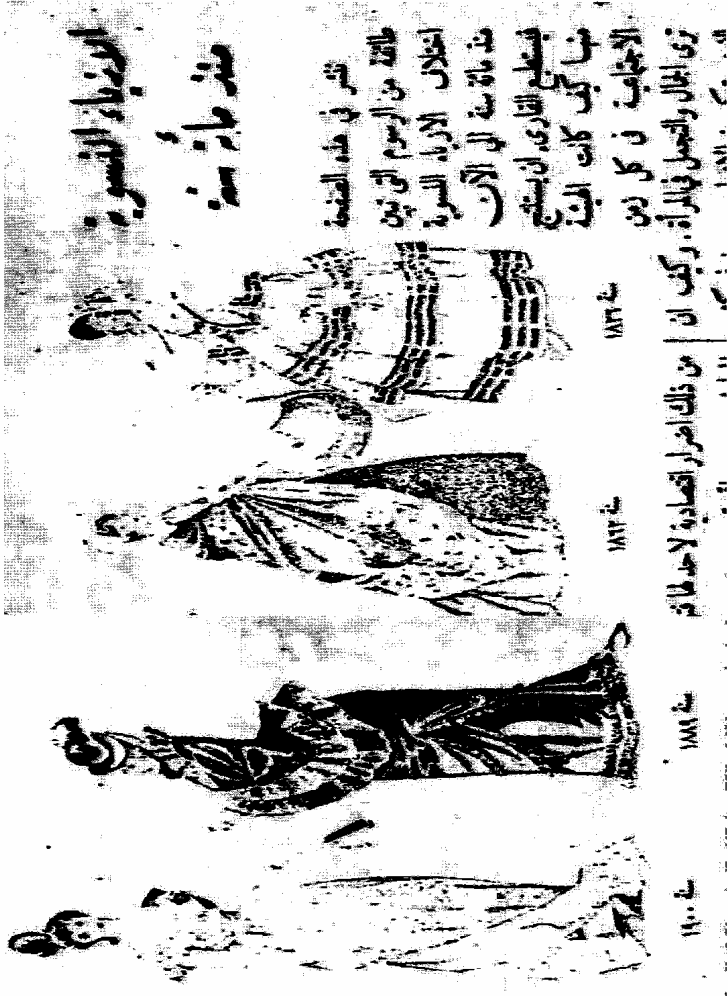 الازياء النسوية
منذ مائة سنة
ننشر في هذه الصفحة
طائفة من الرسوم التي تبين
اختلاف الازياء النسوية
منذ مائة سنة الى الآن
فيستطيع القارىء ان يستنتج
منها كيف كانت الهيئة
الاجتماعية في كل زمن
ترى الجمال والتجمل في المرأة . وكيف ان
سنة ١٨٢٩
سنة ١٨٦٣
سنة ١٨٨٩
سنة ١٩٠٠
من ذلك اضرار اقتصادية لا حد لها